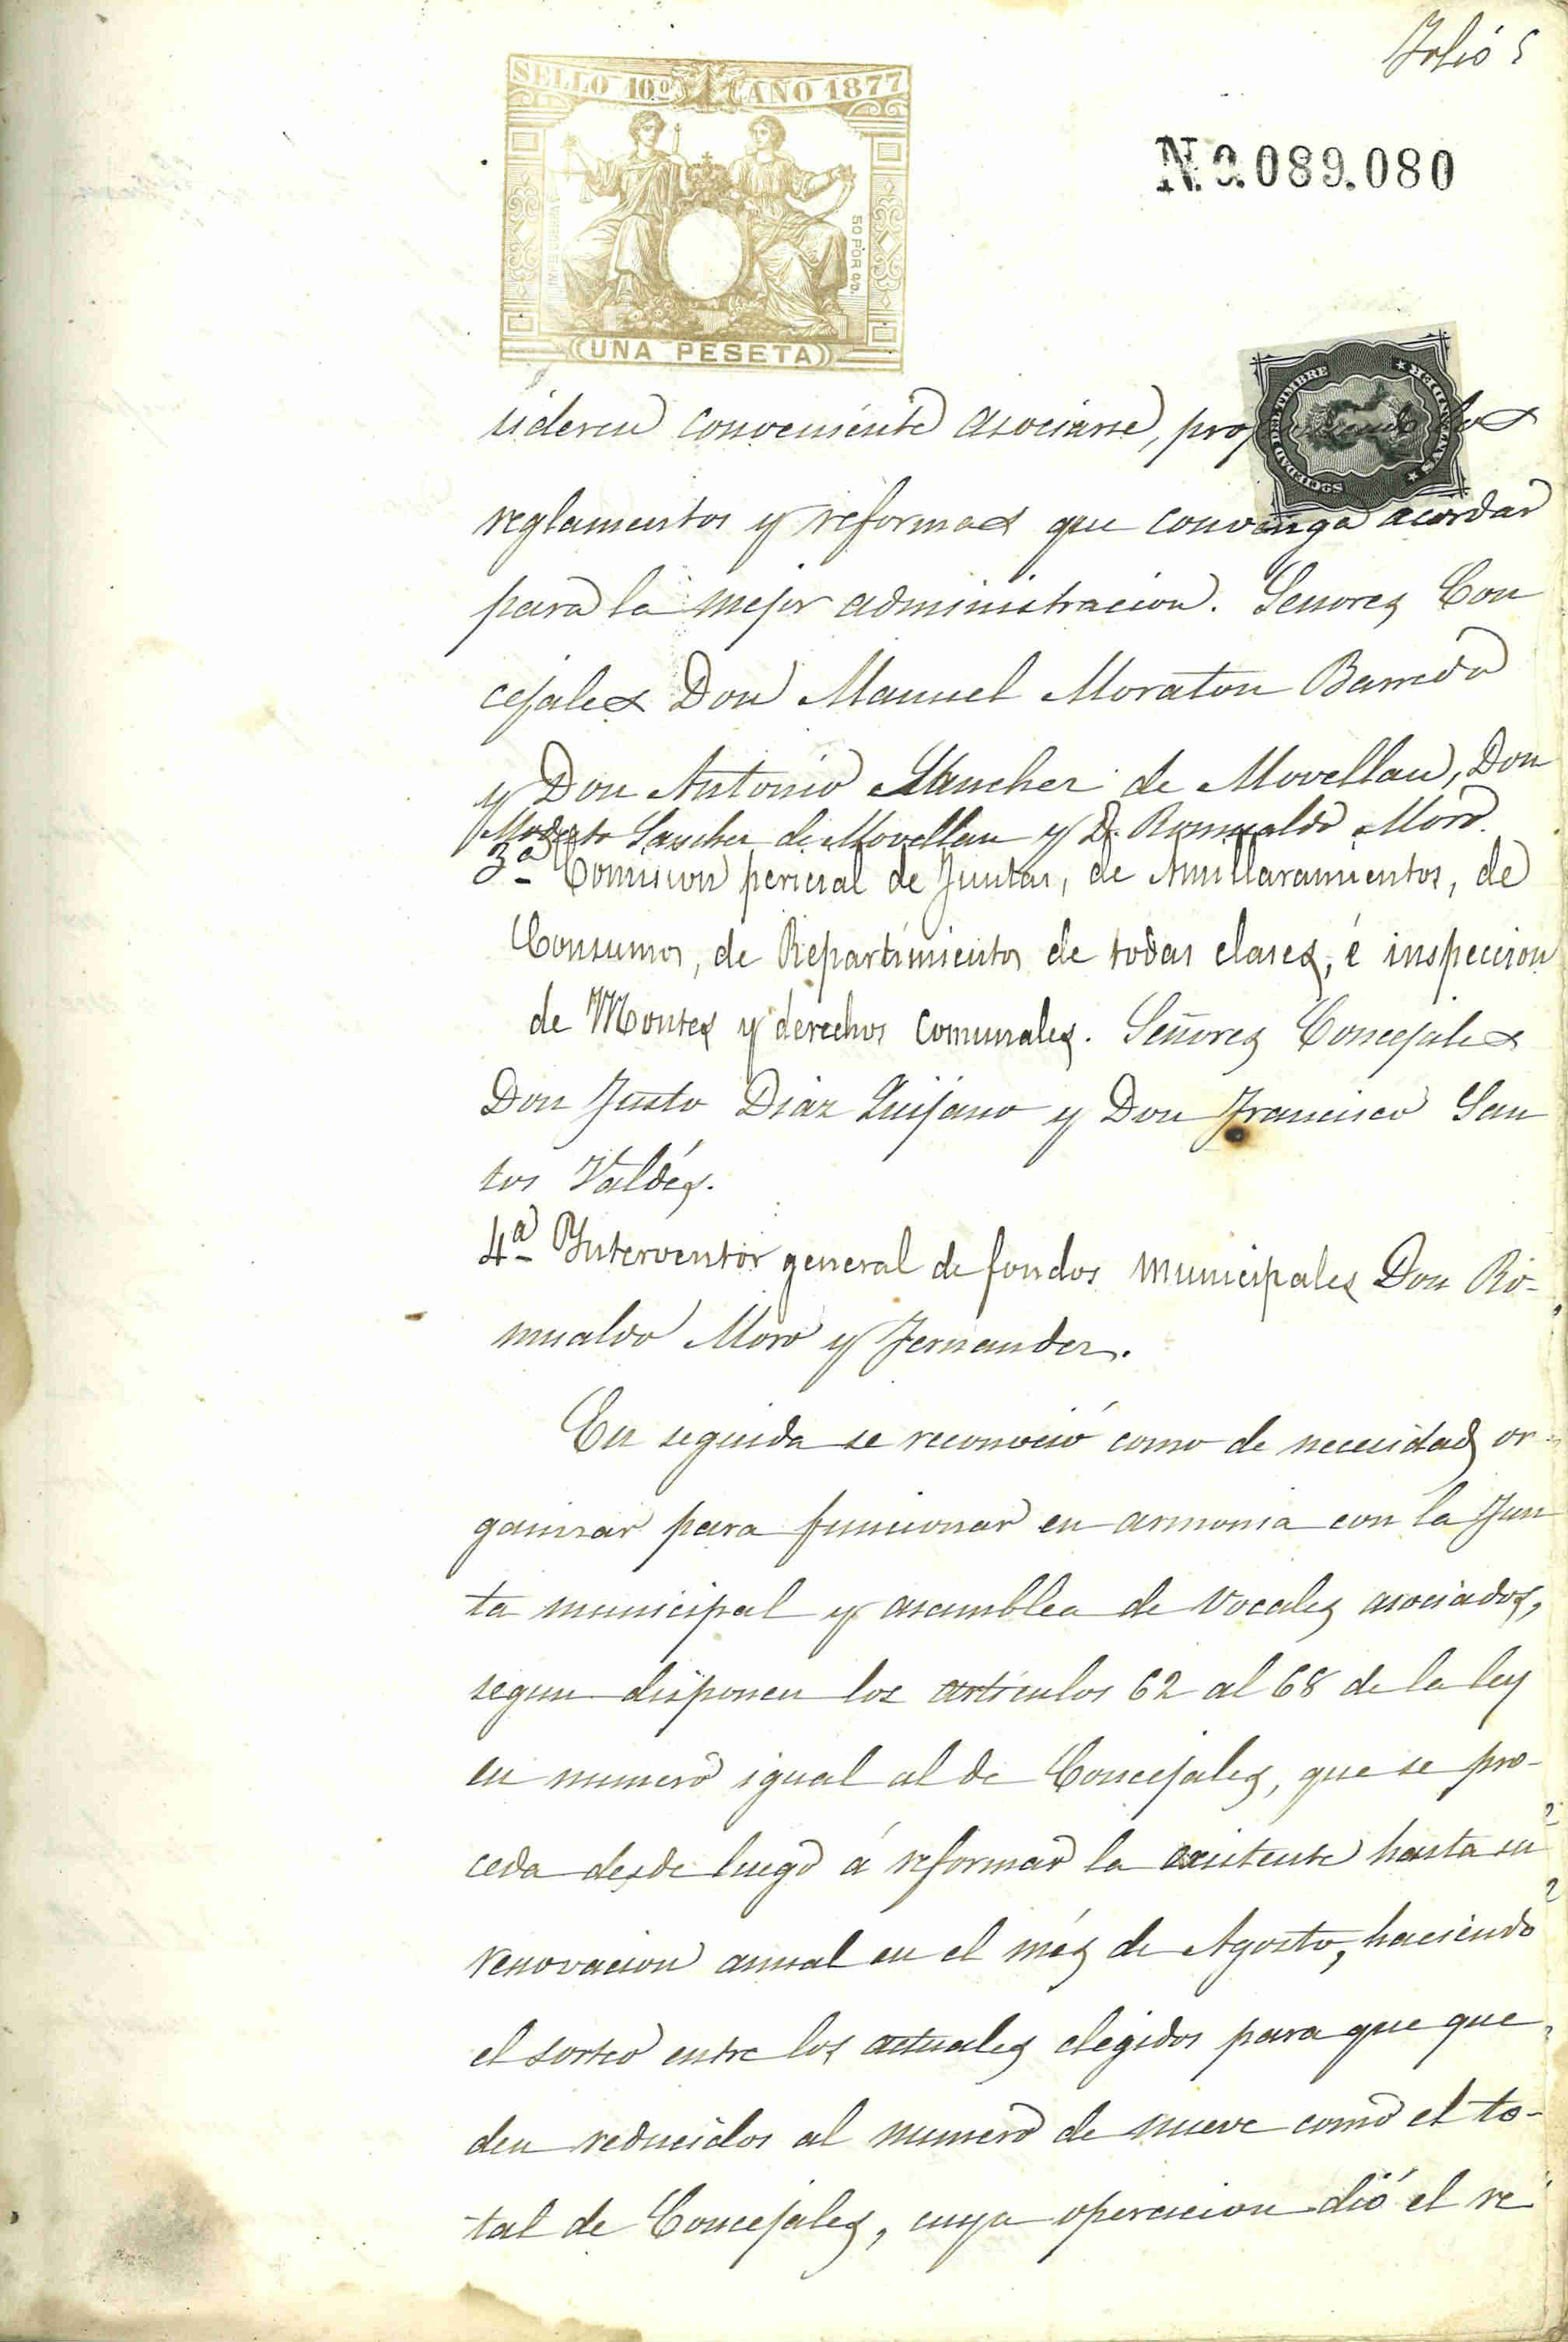 Folio 5
SELLO 10º AÑO 1877
Nº 0.089.080
50 POR %.
UNA PESETA
SOCIEDAD DEL TIMBRE
sideren conveniente asociarse, los
reglamentos y reformas que convenga acordar
para la mejor administracion. Senores Con
cejales Don Manuel Moraton Barredo
y Don Antonio Sanchez de Movellan, Don
Modesto Sanchez de Movellan y D. Romualdo Moro.
3ª Comision pericial de Juntas, de Amillaramientos, de
Consumos, de Repartimientos de todas clases, é inspeccion
de Montes y derechos comunales. Señores Concejales
Don Justo Diaz Quijano y Don Francisco San
tos Valdés.
4ª Ynterventor general de fondos municipales Don Ro-
mualdo Moro y Fernandez.
En seguida se reconoció como de necesidad or-
ganizar para funcionar en armonia con la Jun
ta municipal y asamblea de vocales asociados,
segun disponen los artículos 62 al 68 de la ley
en numero igual al de Concejales, que se pro-
ceda desde luego á reformar la existente hasta su
renovacion anual en el més de Agosto, haciendo
el sorteo entre los actuales elegidos para que que
den reducidos al numero de nueve como el to-
tal de Concejales, cuya operacion dió el re